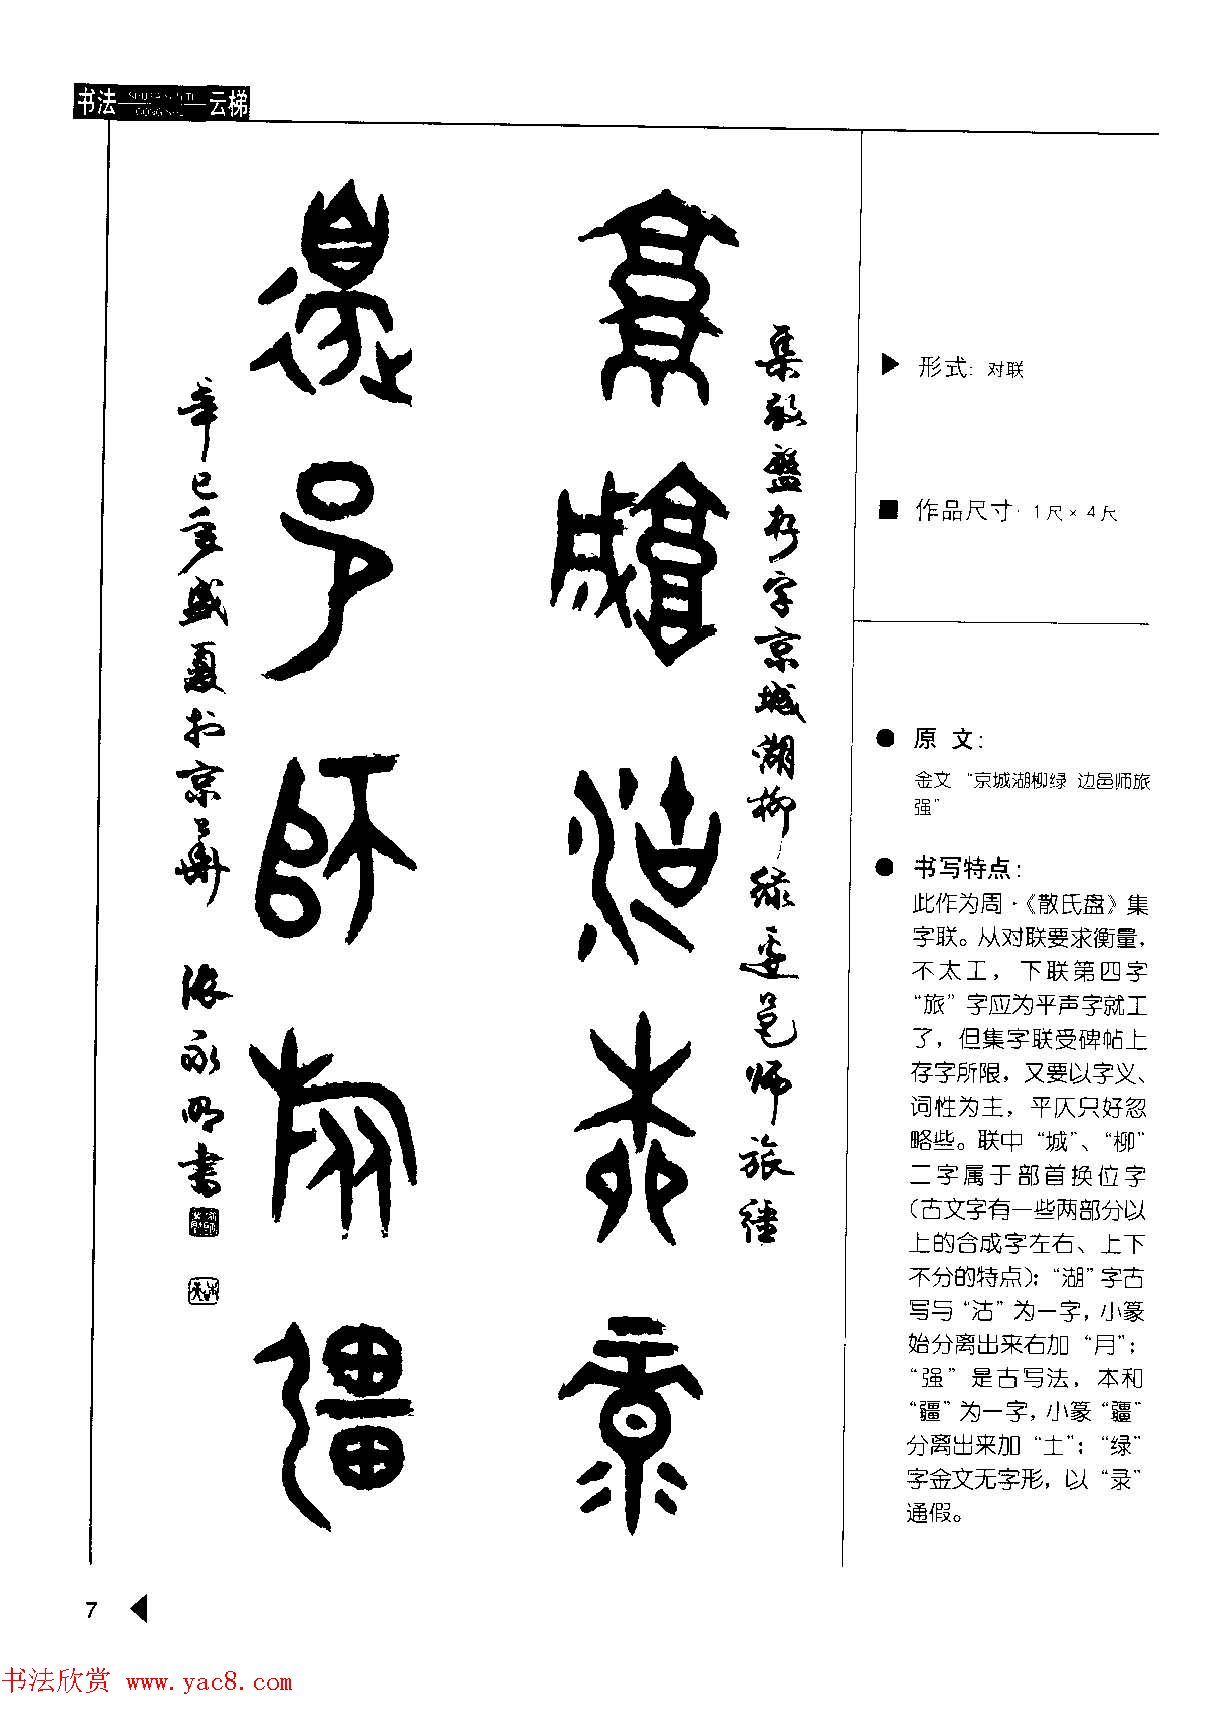 书法 云梯
京城湖柳绿
边邑师旅强
集散盘存字京城湖柳绿边邑师旅疆
辛巳年盛夏于京
永明书
形式：对联
作品尺寸·1尺×4尺
原 文：
金文 “京城湖柳绿 边邑师旅
强”
书写特点：
此作为周·《散氏盘》集
字联。从对联要求衡量，
不太工，下联第四字
“旅”字应为平声字就工
了，但集字联受碑帖上
存字所限，又要以字义、
词性为主，平仄只好忽
略些。联中“城”、“柳”
二字属于部首换位字
（古文字有一些两部分以
上的合成字左右、上下
不分的特点）；“湖”字古
写与“沽”为一字，小篆
始分离出来右加“月”；
“强”是古写法，本和
“疆”为一字，小篆“疆”
分离出来加“土”；“绿”
字金文无字形，以“录”
通假。
7
书法欣赏 www.yac8.com